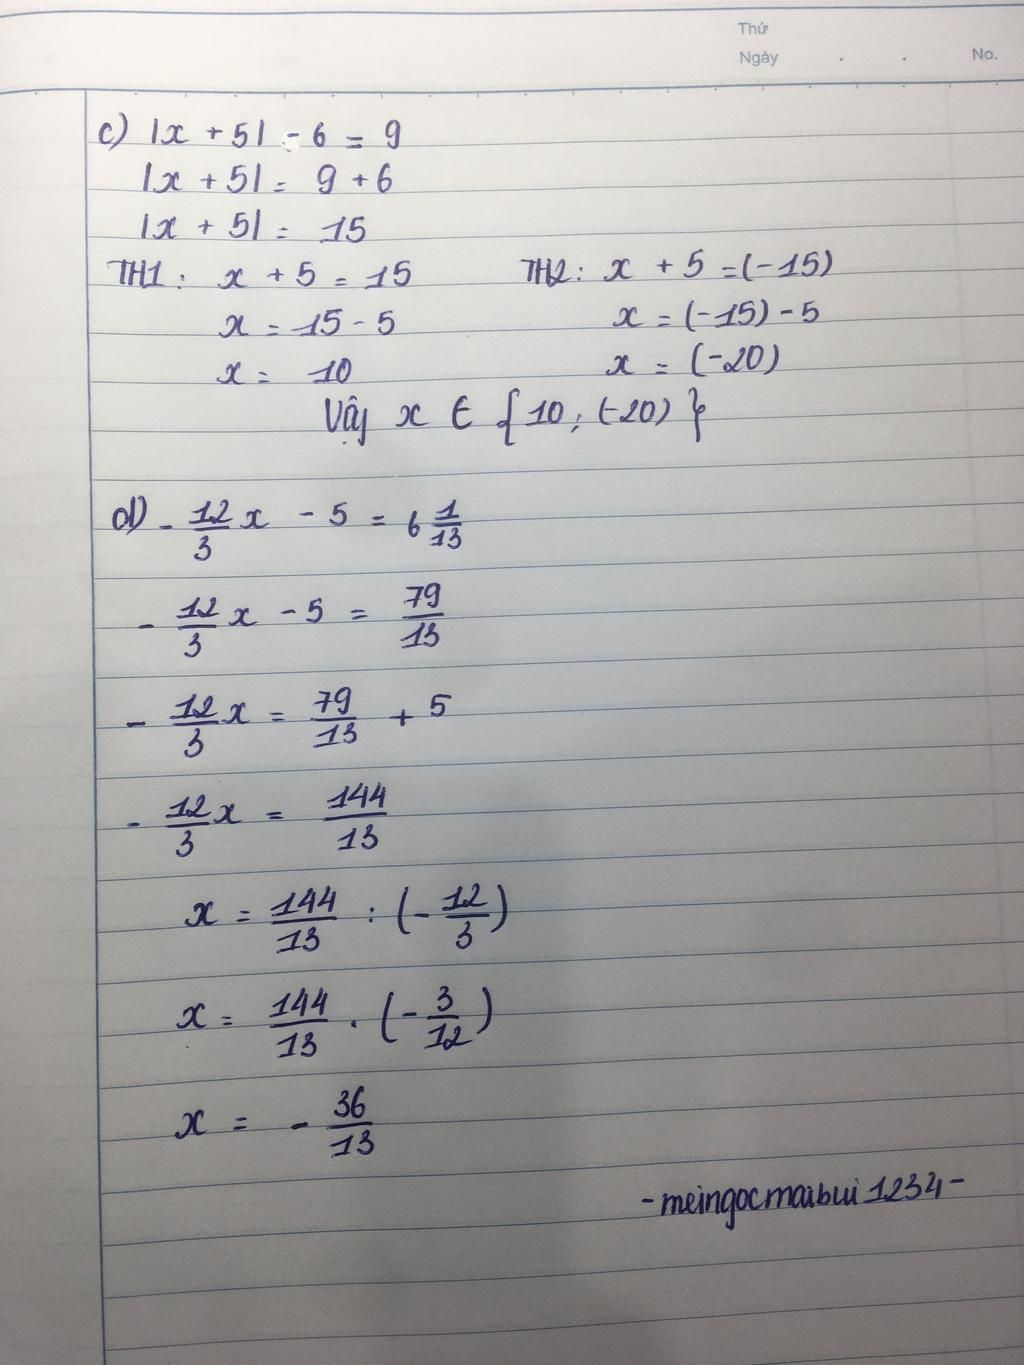 Thứ
Ngày . . No.
c) |x + 5| - 6 = 9
|x + 5| = 9 + 6
|x + 5| = 15
TH1: x + 5 = 15 TH2: x + 5 = (-15)
x = 15 - 5 x = (-15) - 5
x = 10 x = (-20)
Vậy x ∈ {10; (-20)}
d) - 12/3 x - 5 = 6 1/13
- 12/3 x - 5 = 79/13
- 12/3 x = 79/13 + 5
- 12/3 x = 144/13
x = 144/13 : (- 12/3)
x = 144/13 . (- 3/12)
x = - 36/13
- meingocmaibui 1234 -